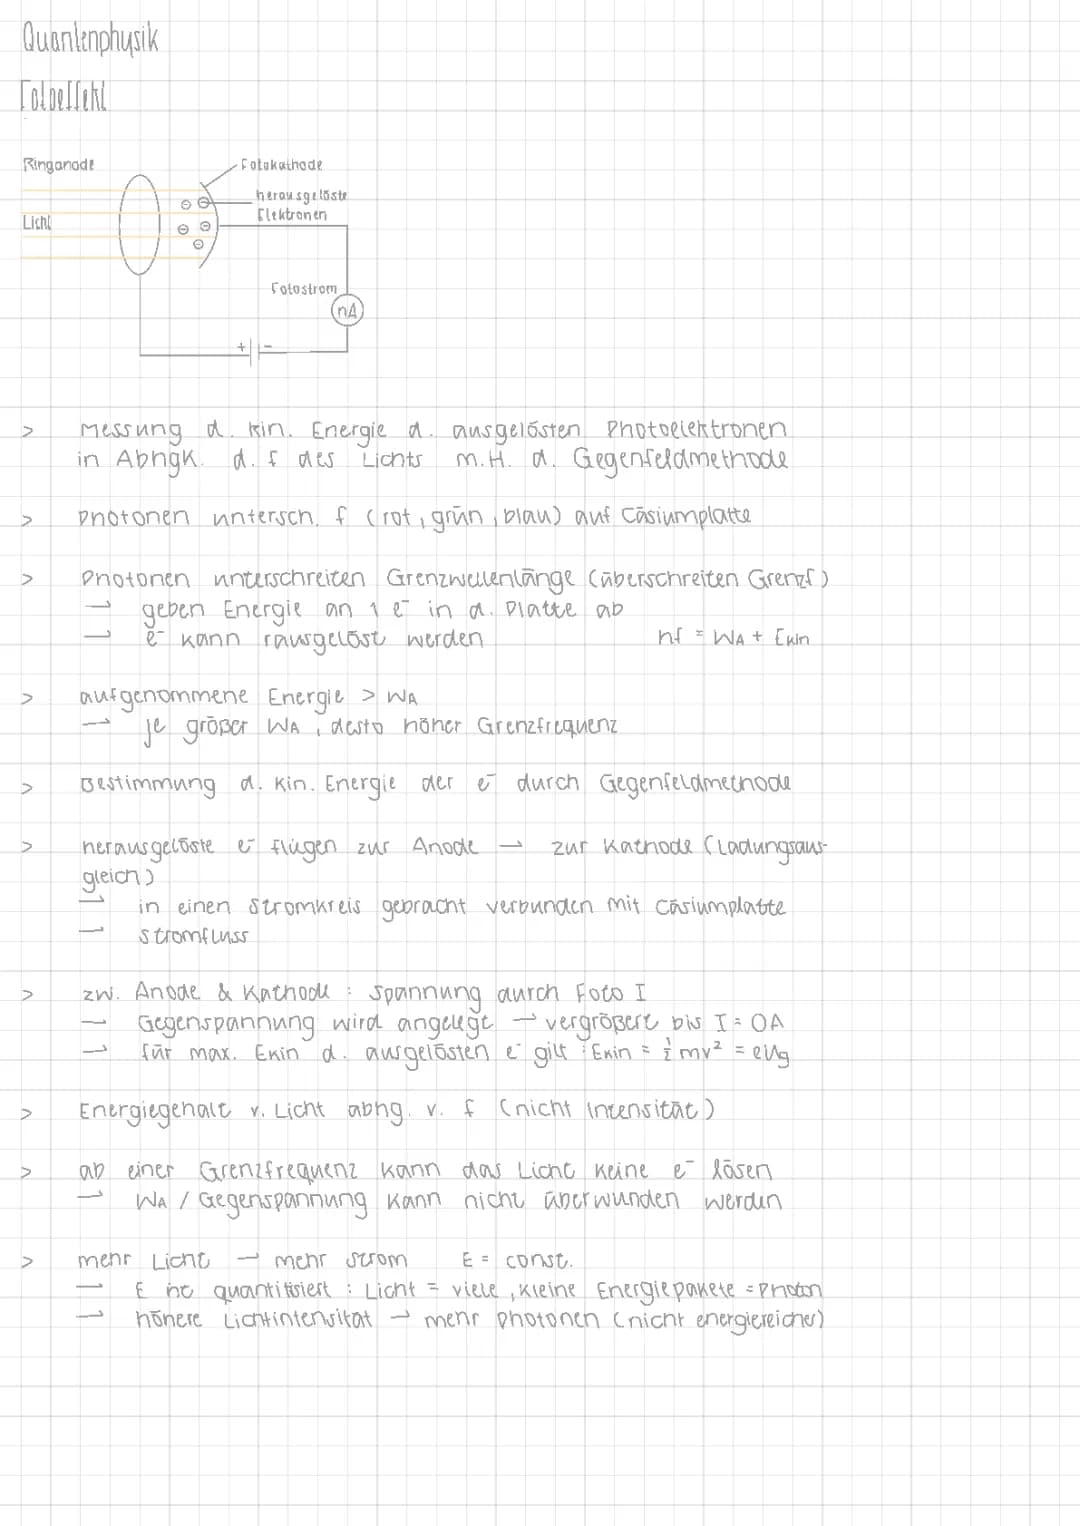 Quantenphysik
Fotoeffekt
Ringanode
Fotokathode
herausgelöste
Elektronen
Licht
Fotostrom
nA
+ -
> Messung d. kin. Energie d. ausgelösten Photoelektronen
in Abhgk. d. f des Lichts m.H. d. Gegenfeldmethode
> Photonen untersch. f (rot, grün, blau) auf Cäsiumplatte
> Photonen unterschreiten Grenzwellenlänge (überschreiten Grenzf)
→ geben Energie an 1 e⁻ in d. Platte ab
→ e⁻ kann rausgelöst werden hf = WA + Ekin
> aufgenommene Energie > WA
→ je größer WA, desto höher Grenzfrequenz
> Bestimmung d. kin. Energie der e⁻ durch Gegenfeldmethode
> herausgelöste e⁻ flügen zur Anode → zur Kathode (Ladungsaus-
gleich)
→ in einen Stromkreis gebracht verbunden mit Cäsiumplatte
→ Stromfluss
> zw. Anode & Kathode : Spannung durch Foto I
→ Gegenspannung wird angelegt → vergrößert bis I = 0A
→ für max. Ekin d. ausgelösten e⁻ gilt : Ekin = ½ mv² = eUg
> Energiegehalt v. Licht abhg. v. f (nicht Intensität)
> ab einer Grenzfrequenz kann das Licht keine e⁻ lösen
→ WA / Gegenspannung kann nicht überwunden werden
> mehr Licht → mehr Strom E = const.
→ E ist quantitisiert : Licht = viele, kleine Energiepakete = Photon
→ höhere Lichtintensität → mehr Photonen (nicht energiereicher)